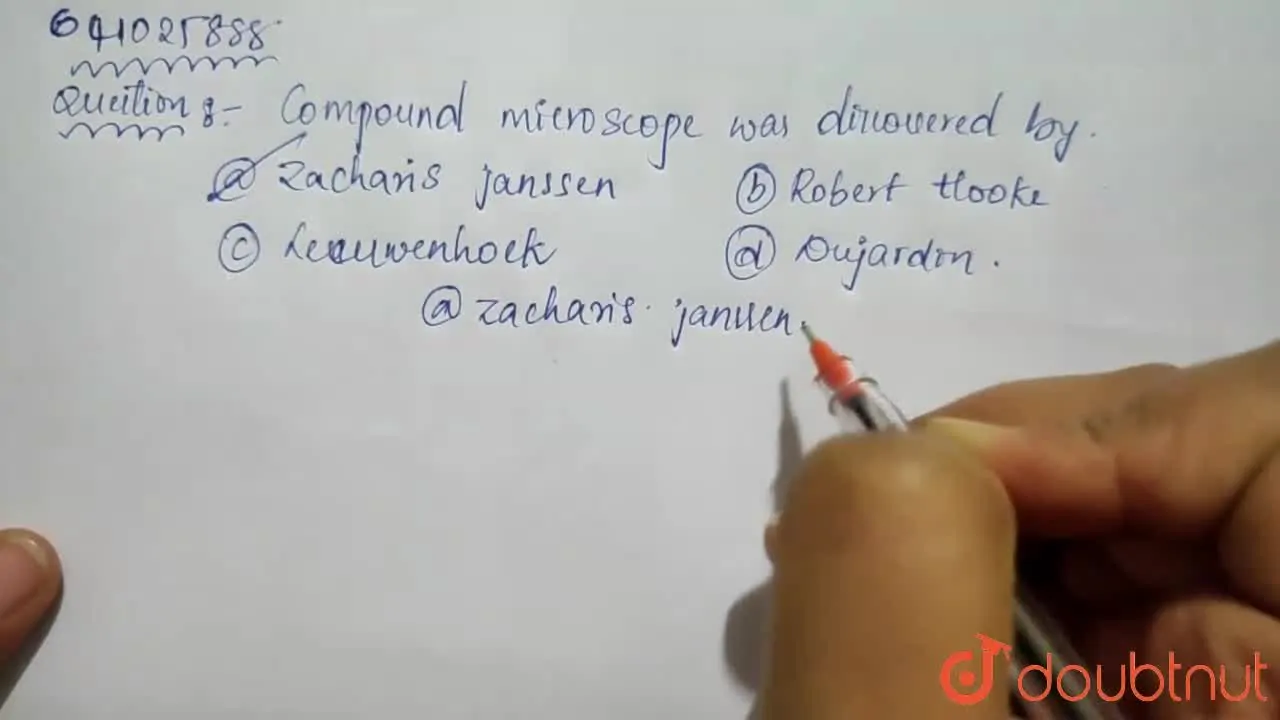 641025888
Question :- Compound microscope was discovered by.
(a) Zacharis janssen (b) Robert Hooke
(c) Leeuwenhoek (d) Dujardin.
(a) Zacharis janssen.
doubtnut